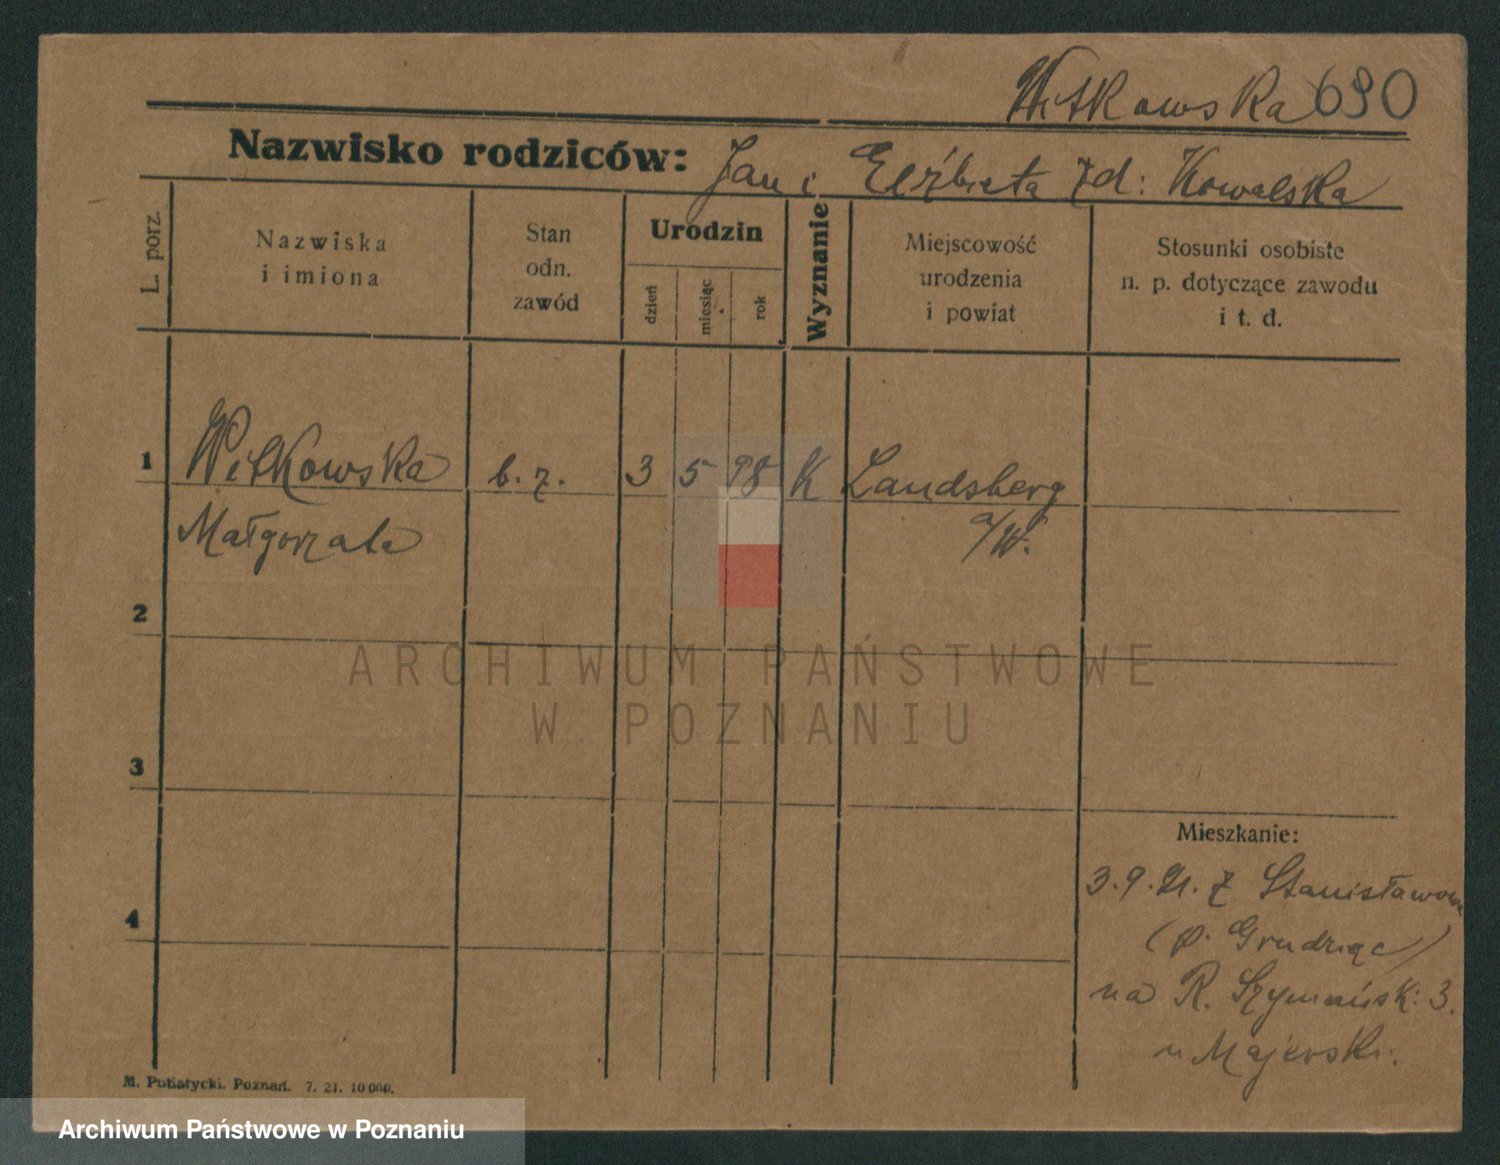 Witkowska 690
Nazwisko rodziców: Jan i Elżbieta zd: Kowalska
L. porz.
Nazwiska
i imiona
Stan
odn.
zawód
Urodzin
dzień
miesiąc
rok
Wyznanie
Miejscowość
urodzenia
i powiat
Stosunki osobiste
n. p. dotyczące zawodu
i t. d.
1 Witkowska b. z. 3 5 98 K Landsberg
Małgorzata a/W.
2
ARCHIWUM PAŃSTWOWE
W POZNANIU
3
Mieszkanie:
3.9.21. z Stanisławowa
4
(p. Grudziąc)
na R. Szymańsk: 3.
u Majersk:
M. Putiatycki. Poznań. 7. 21. 10 000.
Archiwum Państwowe w Poznaniu